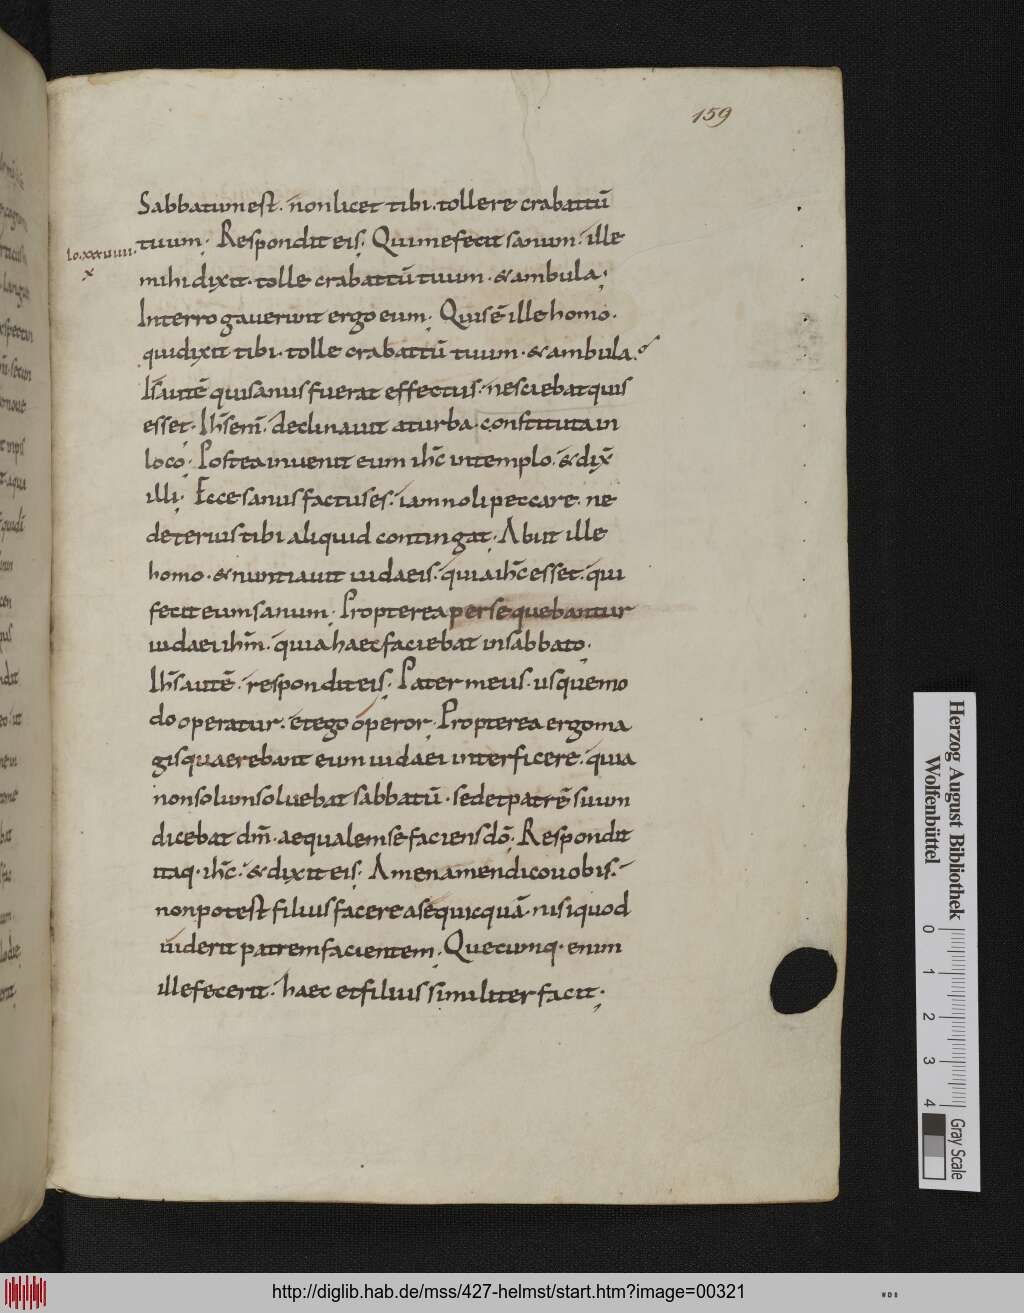 159
Sabbatum est. non licet tibi. tollere crabattū
tuum. Respondit eis. Qui me fecit sanum. ille
Io. xxxviiii.
x
mihi dixit. tolle crabattū tuum. & ambula.
Interrogaverunt ergo eum. Quis ē ille homo.
qui dixit tibi. tolle crabattū tuum. & ambula.
Is autē qui sanus fuerat effectus. nesciebat quis
esset. Ihs enī. declinavit a turba constituta in
loco. Postea invenit eum ihc̄ in templo. & dix̄
illi. Ecce sanus factus es. iam noli peccare. ne
deterius tibi aliquid contingat. Abiit ille
homo. & nuntiavit iudaeis. quia ihc̄ esset. qui
fecit eum sanum. Propterea persequebantur
iudaei ihm̄. quia haec faciebat in sabbato.
Ihs̄ autē. respondit eis. Pater meus. usque mo
do operatur. et ego operor. Propterea ergo ma
gis quaerebant eum iudaei interficere. quia
non solum solvebat sabbatū. sed et patrē suum
dicebat dm̄. aequalem se faciens dō. Respondit
itaq. ihc̄. & dixit eis. Amen amen dico vobis.
non potest filius facere a se quicquā. nisi quod
viderit patrem facientem. Quecumq. enim
ille fecerit. haec et filius similiter facit.
Herzog August Bibliothek
Wolfenbüttel
0 1 2 3 4
Gray Scale
http://diglib.hab.de/mss/427-helmst/start.htm?image=00321